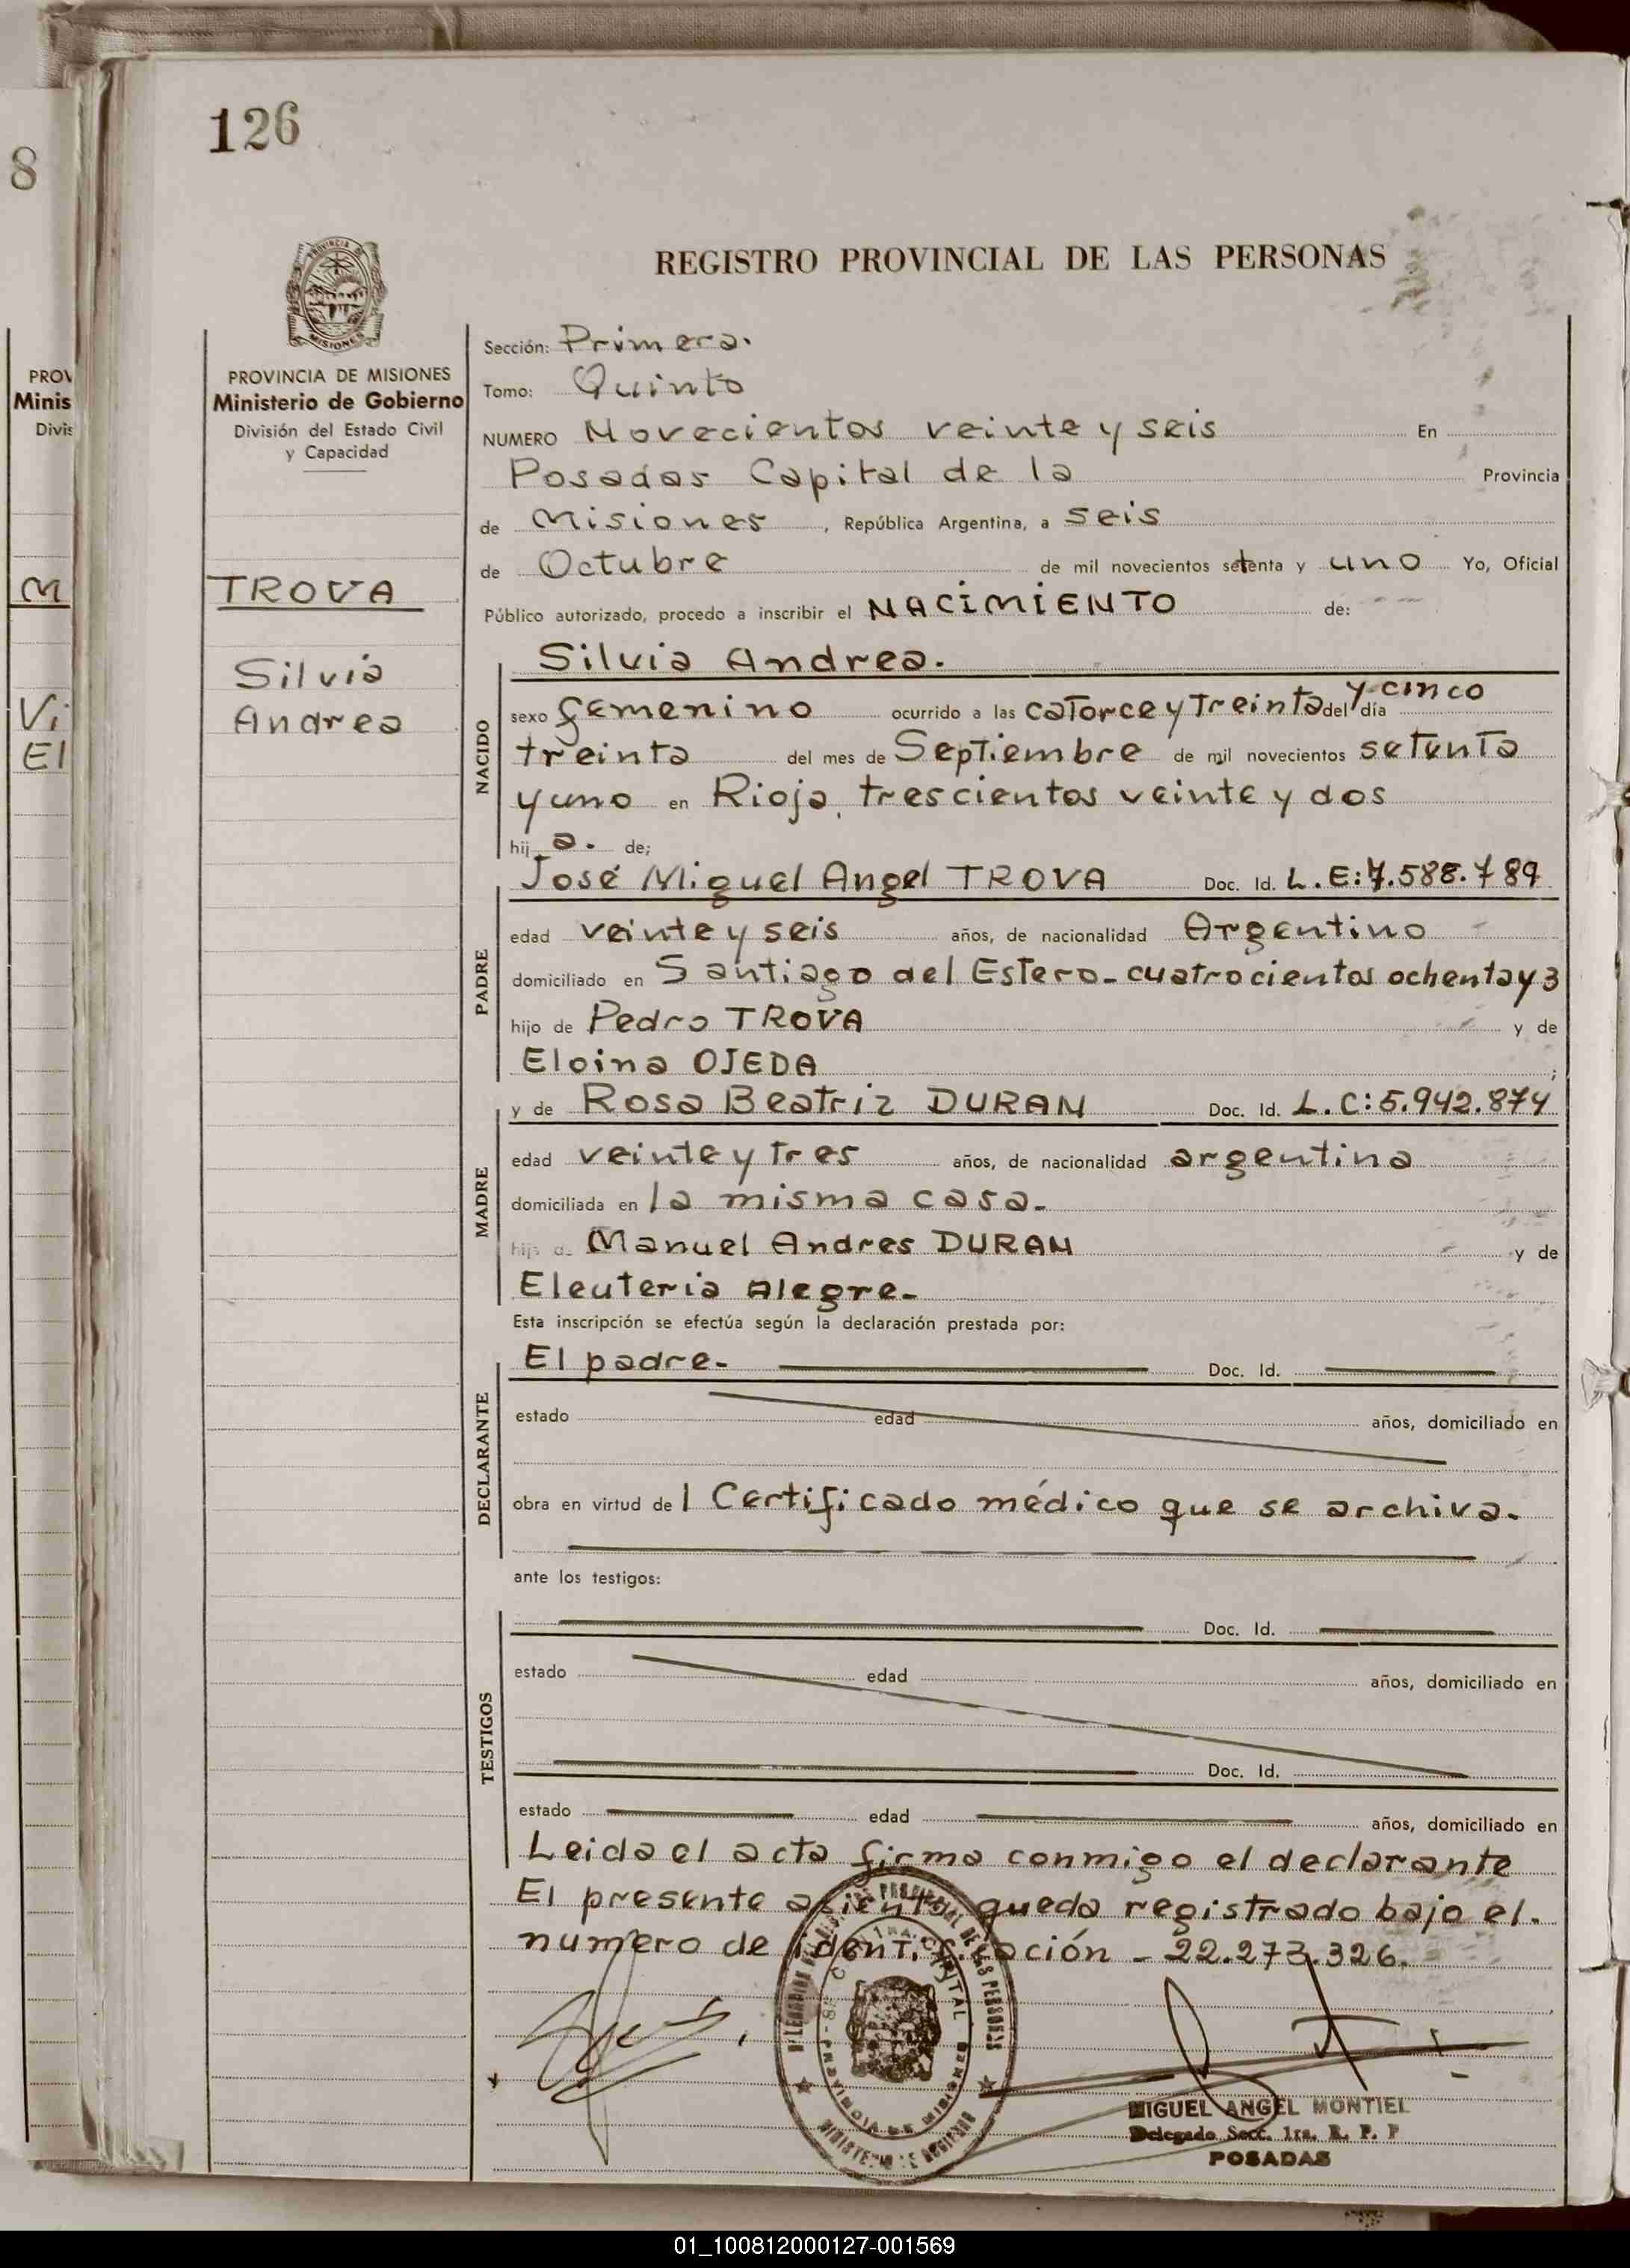 126
8
REGISTRO PROVINCIAL DE LAS PERSONAS
PROVINCIA
MISIONES
PROVINCIA DE MISIONES
Ministerio de Gobierno
División del Estado Civil
y Capacidad
PROV
Minis
Divis
M
Vi
El
TROVA
Silvia
Andrea
Sección: Primera.
Tomo: Quinto
NUMERO Novecientos veinte y seis En
Posadas Capital de la Provincia
de Misiones, República Argentina, a seis
de Octubre de mil novecientos setenta y uno Yo, Oficial
Público autorizado, procedo a inscribir el NACIMIENTO de:
NACIDO
Silvia Andrea.
y cinco
sexo femenino ocurrido a las catorce y treinta del día
treinta del mes de Septiembre de mil novecientos setenta
y uno en Rioja, trescientos veinte y dos
hij a. de;
PADRE
José Miguel Angel TROVA Doc. Id. L.E: 7.588.789
edad veinte y seis años, de nacionalidad Argentino
domiciliado en Santiago del Estero- cuatrocientos ochenta y 3
hijo de Pedro TROVA y de
Eloina OJEDA ;
MADRE
y de Rosa Beatriz DURAN Doc. Id. L.C: 5.942.874
edad veinte y tres años, de nacionalidad argentina
domiciliada en la misma casa.
hija de Manuel Andres DURAN y de
Eleuteria Alegre-
Esta inscripción se efectúa según la declaración prestada por:
DECLARANTE
El padre- Doc. Id.
estado edad años, domiciliado en
obra en virtud de l Certificado médico que se archiva.
ante los testigos:
TESTIGOS
Doc. Id.
estado edad años, domiciliado en
Doc. Id.
estado edad años, domiciliado en
Leida el acta firma conmigo el declarante
El presente asiento queda registrado bajo el.
numero de identificación - 22.273.326.
MIGUEL ANGEL MONTIEL
Delegado Secc. 1ra. R. P. P
POSADAS
01_100812000127-001569